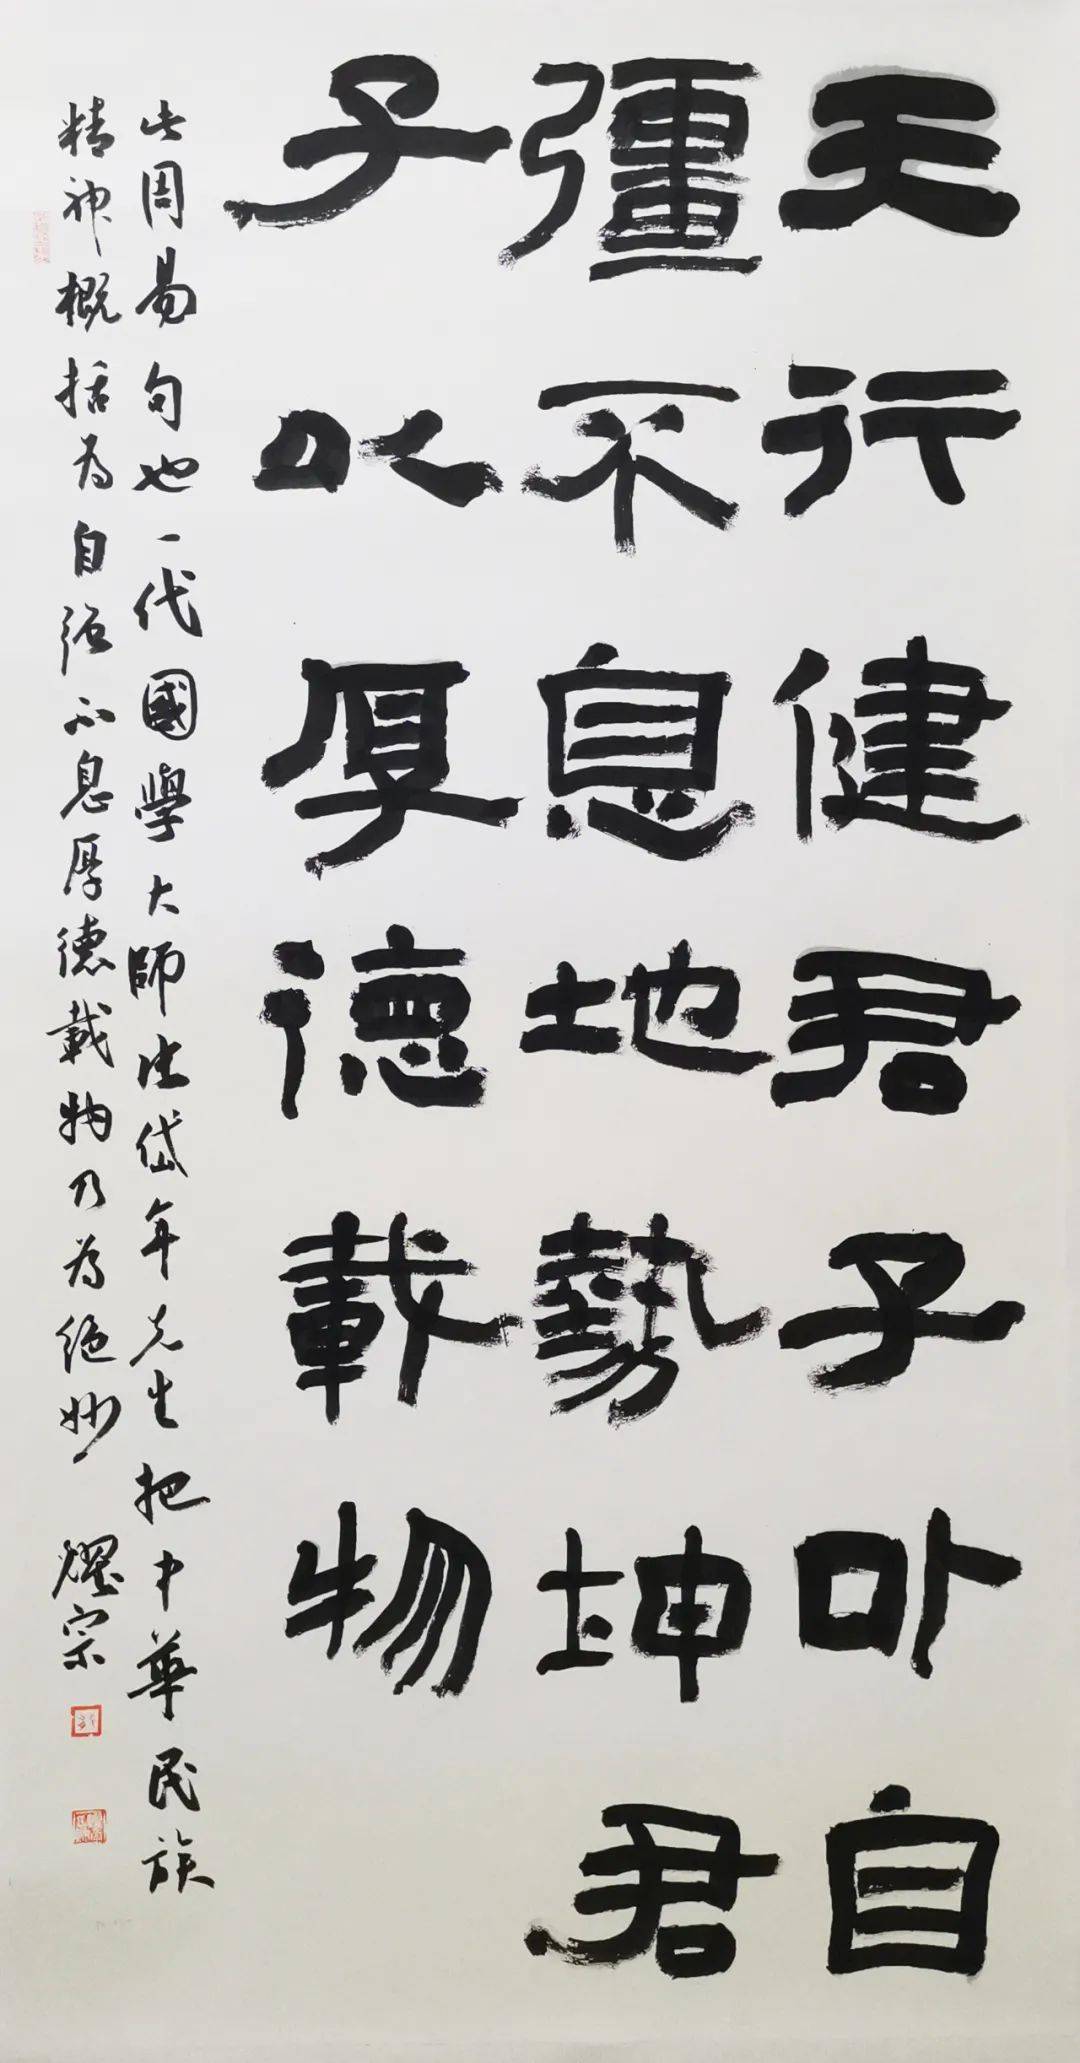 天行健君子以自
彊不息地勢坤君
子以厚德載物
此周易句也一代國學大師張岱年先生把中華民族
精神概括为自强不息厚德載物乃为絕妙 燿宗